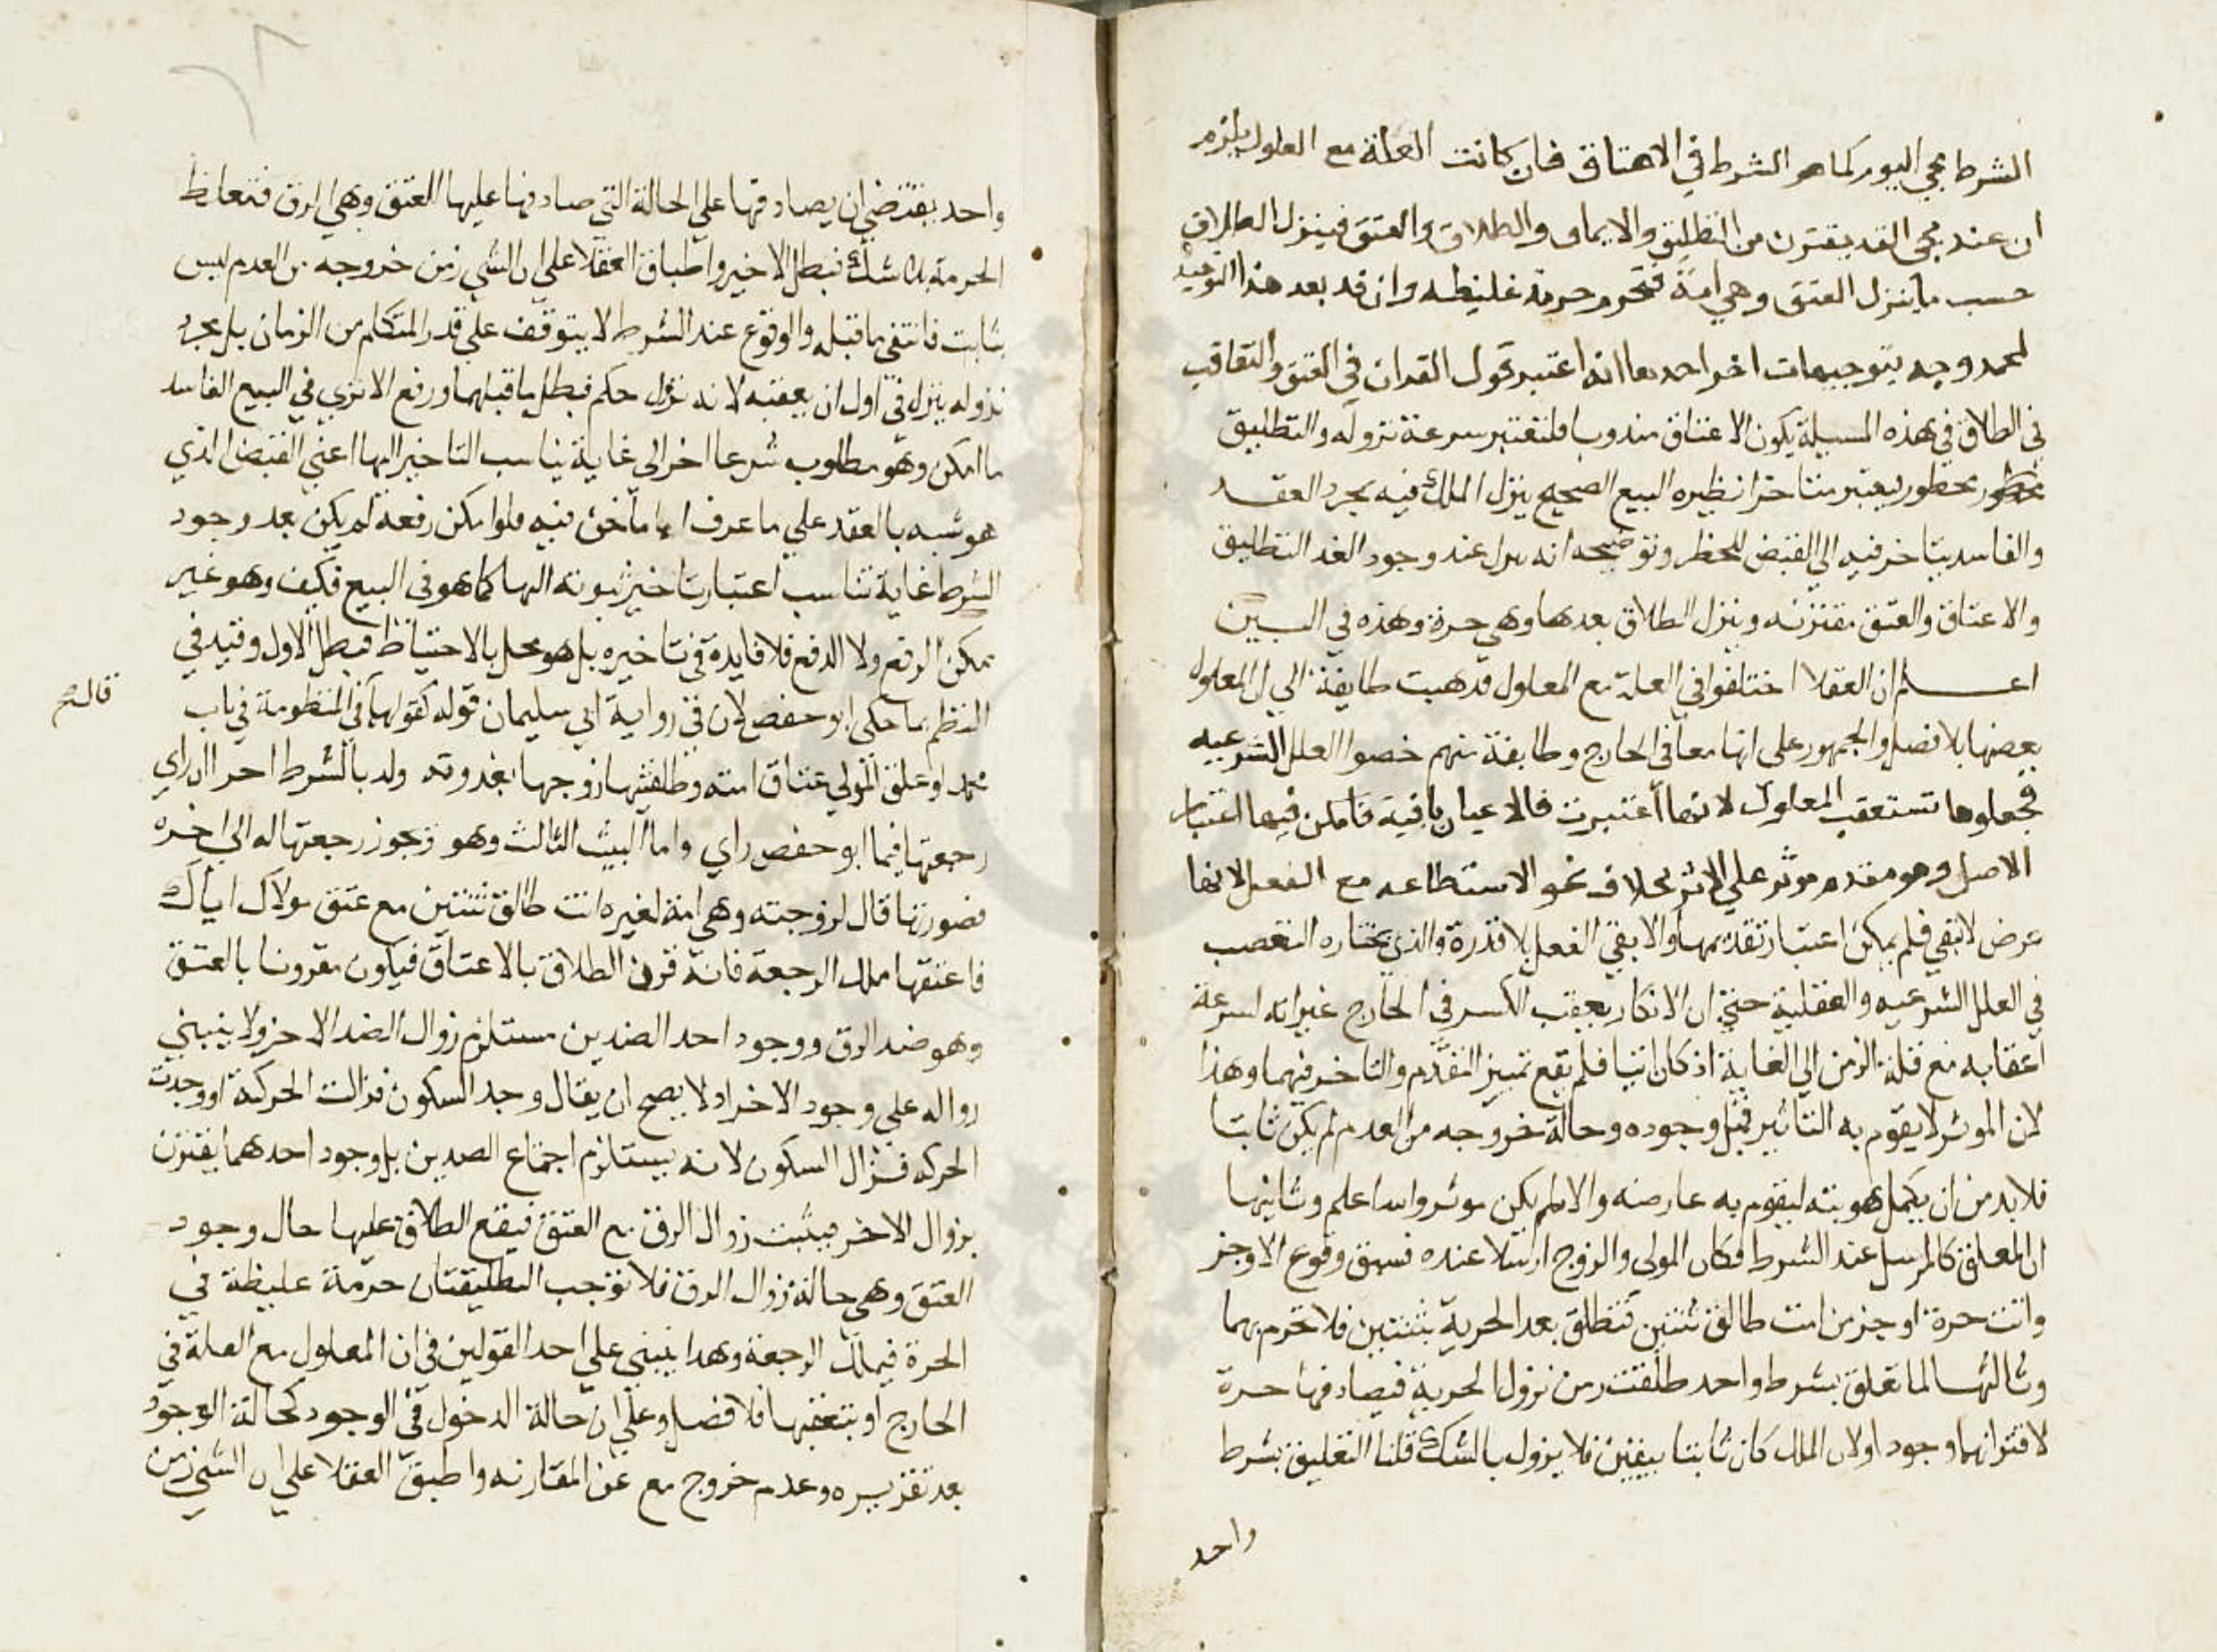 الشرط مجي اليوم كما هو الشرط في الاعتاق فان كانت العلة مع المعلول يلزم
ان عند مجي الغد يقترن من التطليق والايماء والطلاق والعتق فينزل الطلاق
حسب ما ينزل العتق وهي امة فتحرم حرمة غليظه وان قد بعد هذا التوجيه
لمحمد وجه بتوجيهات اخر احدها انه اعتبر تحول القدان في العتق والتعاقب
في الطلاق في هذه المسيلة يكون الاعتاق مندوبا فلتعتبر سرعة نزوله والتطليق
محظور يعتبر متاخرا نظيره البيع الصحيح ينزل الملك فيه بمجرد العقد
والفاسد يتاخر فيه الي القبض للحظر وتوضيحه انه عند وجود الغد التطليق
والاعتاق والعتق مقترنه وينزل الطلاق بعدها وهي حرة وهذه في السين
اعلم ان العقلا اختلفوا في العلة مع المعلول فذهبت طايفة الي ان المعلول
بعضها بلا فصل والجمهور علي انها معا في الخارج وطايفة منهم خصوا العلل الشرعيه
فجعلوها تستعقب المعلول لانها اعتبرت فالاعيان باقية فامكن فيها اعتبار
الاصل وهو مقدم موثر علي الاثر بخلاف نحو الاستطاعه مع الفعل لانها
عرض لا تبقي فلم يمكن اعتبار تقدمها والا بقي الفعل بلا قدرة والذي نختاره التعصب
في العلل الشرعيه والعقلية حتي ان الانكار يعقب الكسر في الخارج غير انه اسرعة
اعقابه مع قلة الزمن الي الغاية اذ كان انيا فلم يقع تمييز التقدم والتاخر فيهما وهذا
لان الموثر لا يقوم به التاثير قبل وجوده وحالة خروجه من العدم لم يكن ثابتا
فلا بد من ان يكمل هويته ليقوم به عارضه والا لم يكن موثرا والله اعلم وثانيها
ان المعلق كالمرسل عند الشرط فكان المولى والزوج ارسلا عنده فسبق وقوع الاوجز
وانت حرة اوجز من انت طالق ثنتين فتطلق بعد الحرية بثنتين فلا تحرم بهما
وثالثها لما تعلق بشرط واحد طلقت زمن نزول الحرية فيصادفها حرة
لاقترانهما وجودا ولان الملك كان ثابتا بيقين فلا يزول بالشك قلنا التعليق بشرط
واحد
واحد يقتضي ان يصادفها علي الحالة التي صادفها عليها العتق وهي الرق فتغلظ
الحرمة بلا شك فبطل الاخير واطباق العقلا علي ان الشي زمن خروجه من العدم ليس
بثابت فانتفي ما قبله والوقوع عند الشرط لا يتوقف علي قدر المتكلم من الزمان بل بمجرد
نزوله ينزل في اول ان يعقبه لانه نزل حكم فبطل ما قبلهما ورفع الا تري في البيع الفاسد
ما امكن وهو مطلوب شرعا اخر الي غاية يناسب التاخير اليها اعني القبض الذي
هو شبه بالعقد علي ما عرف اما ما نحن فيه فلو امكن رفعه لم يكن بعد وجود
الشرط غاية تناسب اعتبار تاخير ثبوته اليها كما هو في البيع فكيف وهو غير
ممكن الرفع ولا الدفع فلا فايدة في تاخيره بل هو مخل بالاحتياط فبطل الاول وقيد في
النظم بما حكي ابو حفص لان في رواية ابي سليمان قوله كقولهما في المنظومة في باب
قال
محمد لو علق المولي عتاق امته وطلقتيها زوجها بغد وته ولد بالشرط احرا ان راي
رجعتها فيما ابو حفص راي واما البيت الثالث وهو وتجوز رجعتها له الي اخره
فصورتها قال لزوجته وهي امة لغيره انت طالق ثنتين مع عتق مولاك اياك
فاعتقها ملك الرجعة فانه قرن الطلاق بالاعتاق فيكون مقرونا بالعتق
وهو ضد الرق ووجود احد الضدين مستلزم زوال الضد الاخر ولا ينبني
زواله علي وجود الاخر اذ لا يصح ان يقال وجد السكون فزالت الحركة او وجدت
الحركه فزال السكون لانه يستلزم اجتماع الضدين بل وجود احدهما يقترن
بزوال الاخر فيثبت زوال الرق مع العتق فيقع الطلاق عليها حال وجود
العتق وهي حالة زوال الرق فلا توجب التطليقتان حرمة غليظة في
الحرة فيملك الرجعة وهذا ينبني علي احد القولين في ان المعلول مع العلة في
الخارج او يتعقبها فلا فصل وعلي ان حالة الدخول في الوجود كحالة الوجود
بعد تقريره وعدم خروج مع عن المقارنه واطبق العقلا علي ان الشي زمن